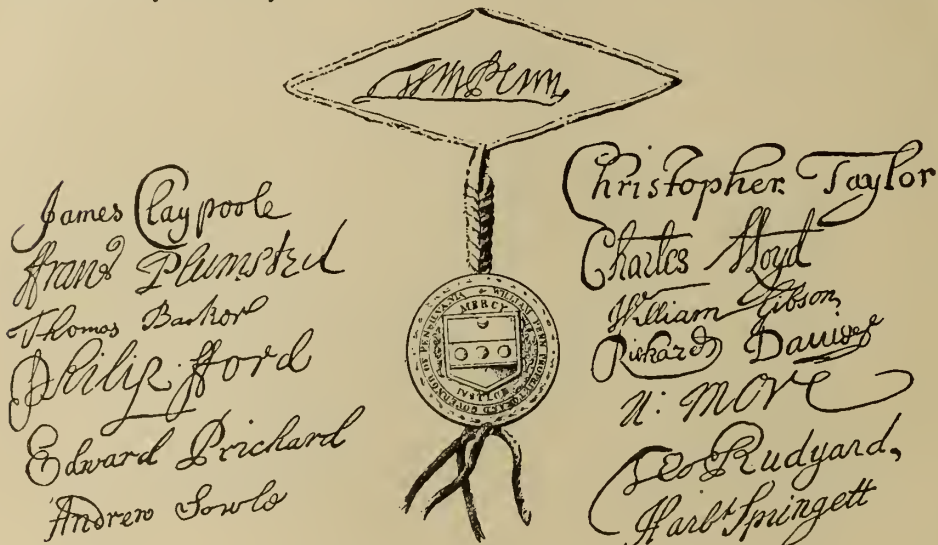 WmPenn
James Claypoole
ffran: Plumsted
Thomas Barker
Philip fford
Edward Prichard
Andrew Sowle
MERCY
JUSTIS
WILLIAM PENN PROPRIETOR AND GOVERNOR OF PENSILVANIA
Christopher Taylor
Charles Lloyd
William Gibson,
Richard Davies
N: MORE
Geo Rudyard,
Harbt Springett